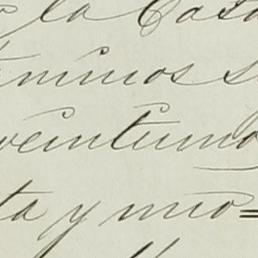 la Casa
terminos s
veintiuno
ta y uno=